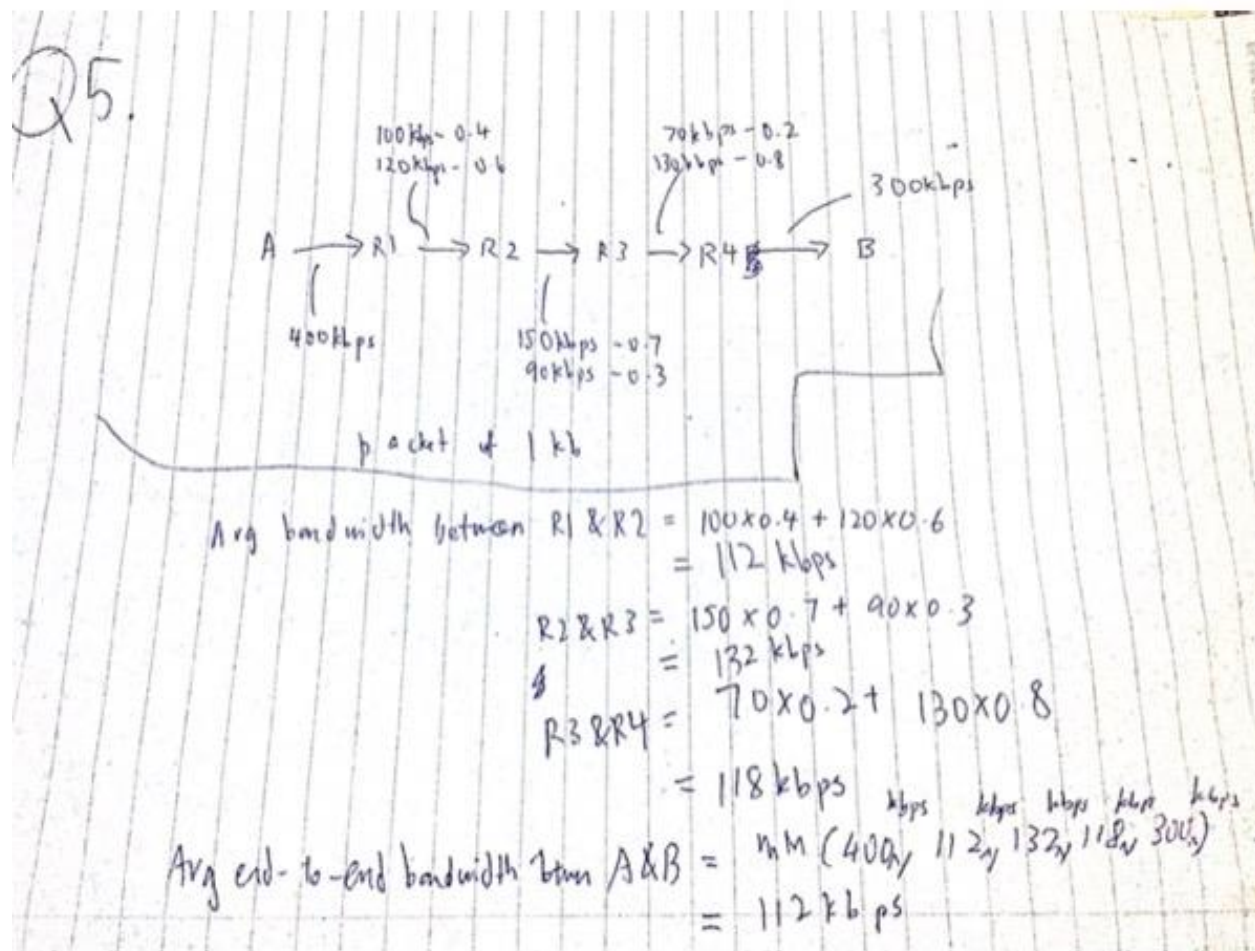 Q5.
100kbps - 0.4
120kbps - 0.6
70kbps - 0.2
130kbps - 0.8
300kbps
A → R1 → R2 → R3 → R4 → B
400kbps
150kbps - 0.7
90kbps - 0.3
packet of 1 kb
Avg bandwidth between R1 & R2 = 100x0.4 + 120x0.6
= 112 kbps
R2&R3 = 150 x 0.7 + 90x0.3
= 132 kbps
R3&R4 = 70x0.2+ 130x0.8
= 118 kbps
kbps kbps kbps kbps kbps
Avg end-to-end bandwidth btwn A&B = min (400, 112, 132, 118, 300)
= 112 kbps